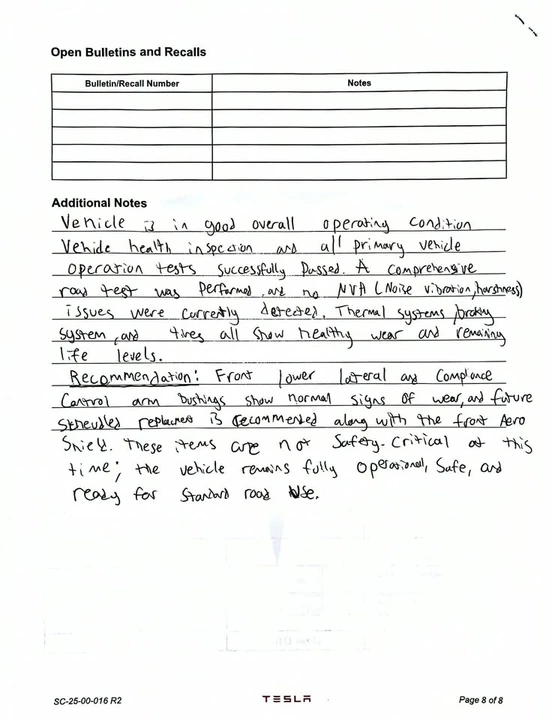 Open Bulletins and Recalls
Bulletin/Recall Number Notes
Additional Notes
Vehicle is in good overall operating condition
Vehicle health inspection and all primary vehicle
operation tests successfully passed. A comprehensive
road test was performed, and no NVH (Noise vibration, harshness)
issues were currently detected. Thermal systems, braking
system, and tires all show healthy wear and remaining
life levels.
Recommendation: Front lower lateral and Compliance
Control arm bushings show normal signs of wear, and future
replacement is recommended along with the front Aero
Shield. These items are not Safety-Critical at this
time; the vehicle remains fully operational, safe, and
ready for standard road use.
SC-25-00-016 R2 TESLA Page 8 of 8